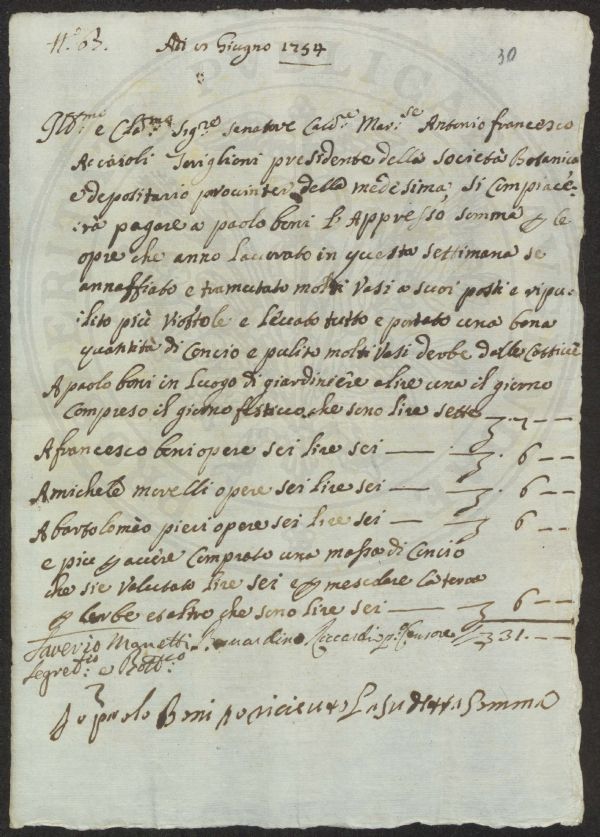 N.° 63. Adi 15 Giugno 1754 30
Ill.mo e Cla.mo Sig.re Senatore Cald.e Mar:se Antonio francesco
Acciaioli Toriglioni presidente della società Botanica
e depositario provinter della medesima si Compiace-
:rà pagare a paolo boni l'Appresso somma p le
opre che anno Lavorato in questa settimana se
annaffiato e tramutato molti Vasi a suoi posti e ripu-
:lito più Viottole e Levato tutto e portato una bona
quantità di Concio e pulito molti Vasi derbe dalle Catticie
A paolo boni in Luogo di giardiniêre a lire una il giorno
Compreso il giorno festivo che sono lire sette — 7 — —
A francesco beni opere sei lire sei — 6 — —
A michele morelli opere sei lire sei — 6 — —
A bartolomèo pieri opere sei lire sei — 6 — —
e piu p avère Comprato una massa di Concio
che sie Valutato lire sei e p mescolare la terra
p l'erbe et altro che sono lire sei — 6 — —
Saverio Manetti Bernardino Riccardi p.° Censore 31. — —
Segret.io e Bott.co
Io paolo Boni o riceuto La sudetta Somma